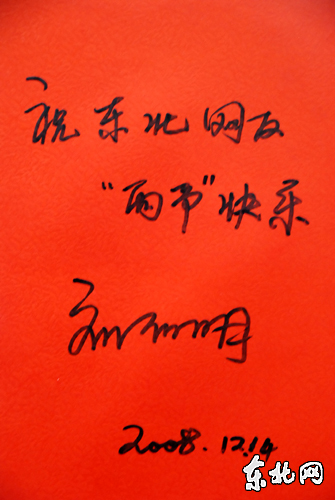 祝东北网友
“两节”快乐
2008.12.14
东北网